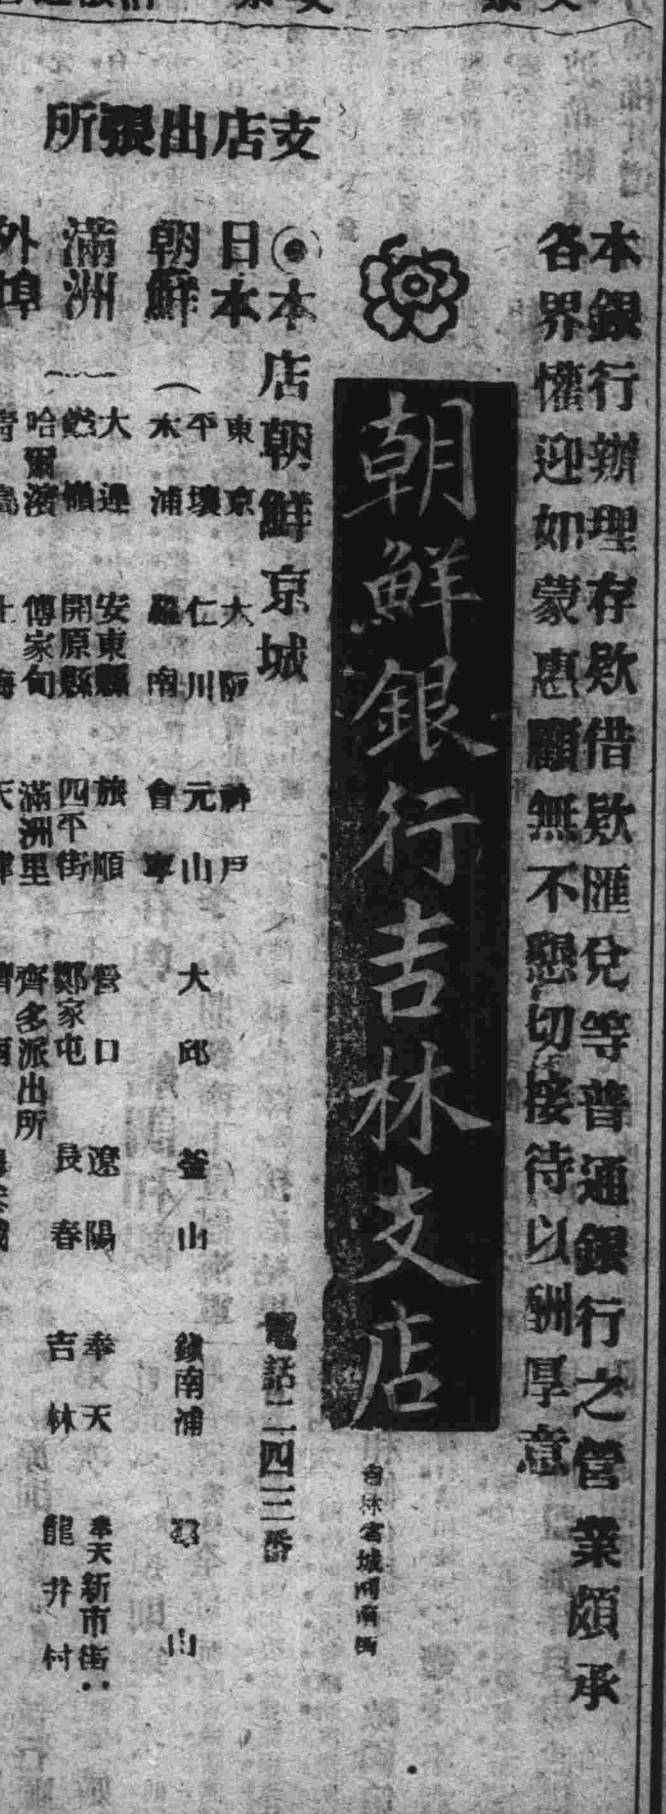 本銀行辦理存欵借欵匯兌等普通銀行之營業頗承
各界懽迎如蒙惠顧無不懇切接待以酬厚意
朝鮮銀行吉林支店
支店出張所
◉本店朝鮮京城 電話二四三番
日本 東京 大阪 神戶
朝鮮 平壤 仁川 元山 大邱 釜山 鎮南浦 山
木浦 羅南 會寧
滿洲 大連 安東縣 旅順 營口 遼陽 奉天 奉天新市街
開原縣 四平街 鄭家屯 長春 吉林 龍井村
哈爾濱 傅家甸 滿洲里 齊多派出所
外埠